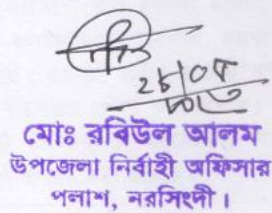 মোঃ রবিউল আলম
উপজেলা নির্বাহী অফিসার
পলাশ, নরসিংদী।